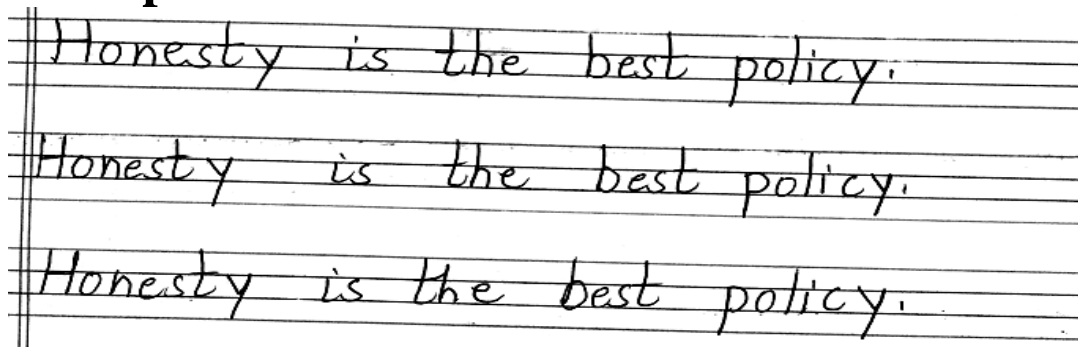 Honesty is the best policy.
Honesty is the best policy.
Honesty is the best policy.